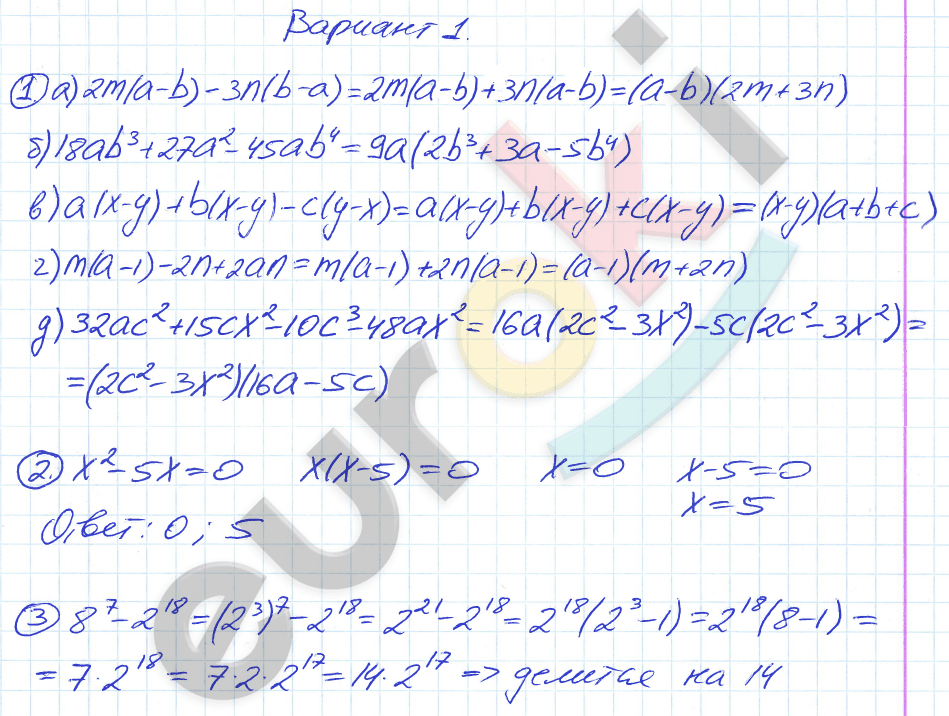 Вариант 1.
① а) 2m(a-b)-3n(b-a)=2m(a-b)+3n(a-b)=(a-b)(2m+3n)
б) 18ab³+27a²-45ab⁴=9a(2b³+3a-5b⁴)
в) a(x-y)+b(x-y)-c(y-x)=a(x-y)+b(x-y)+c(x-y)=(x-y)(a+b+c)
г) m(a-1)-2n+2an=m(a-1)+2n(a-1)=(a-1)(m+2n)
д) 32ac²+15cx²-10c³-48ax²=16a(2c²-3x²)-5c(2c²-3x²)=
=(2c²-3x²)(16a-5c)
②. x²-5x=0 x(x-5)=0 x=0 x-5=0
x=5
Ответ: 0; 5
③ 8⁷-2¹⁸=(2³)⁷-2¹⁸=2²¹-2¹⁸=2¹⁸(2³-1)=2¹⁸(8-1)=
=7·2¹⁸=7·2·2¹⁷=14·2¹⁷ => делится на 14
euroki